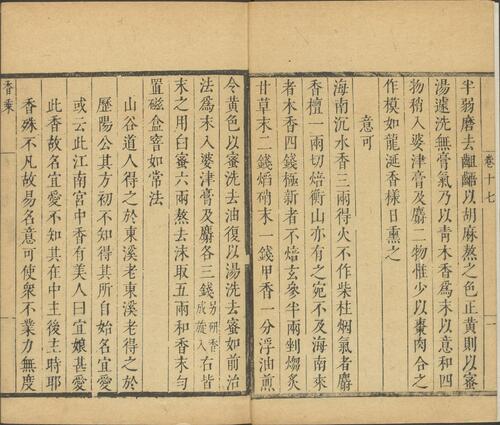 卷十七
半弱磨去齟齬以胡麻熬之色正黃則以蜜
湯遽洗無膏氣乃以青木香為末以意和四
物稍入婆津膏及麝二物惟少以棗肉合之
作模如龍涎香樣日熏之
意可
海南沉水香三兩得火不作柴杜烟氣者麝
香檀一兩切焙衡山亦有之宛不及海南來
者木香四錢極新者不焙玄參半兩剉煼炙
甘草末二錢焰硝末一錢甲香一分浮油煎
令黃色以蜜洗去油復以湯洗去蜜如前治
法為末入婆津膏及麝各三錢另研香成旋入右皆
末之用白蜜六兩熬去沫取五兩和香末勻
置磁盒窨如常法
山谷道人得之於東溪老東溪老得之於
歷陽公其方初不知得其所自始名宜愛
或云此江南宮中香有美人曰宜娘甚愛
此香故名宜愛不知其在中主後主時耶
香殊不凡故易名意可使眾不業力無度
香乘
一